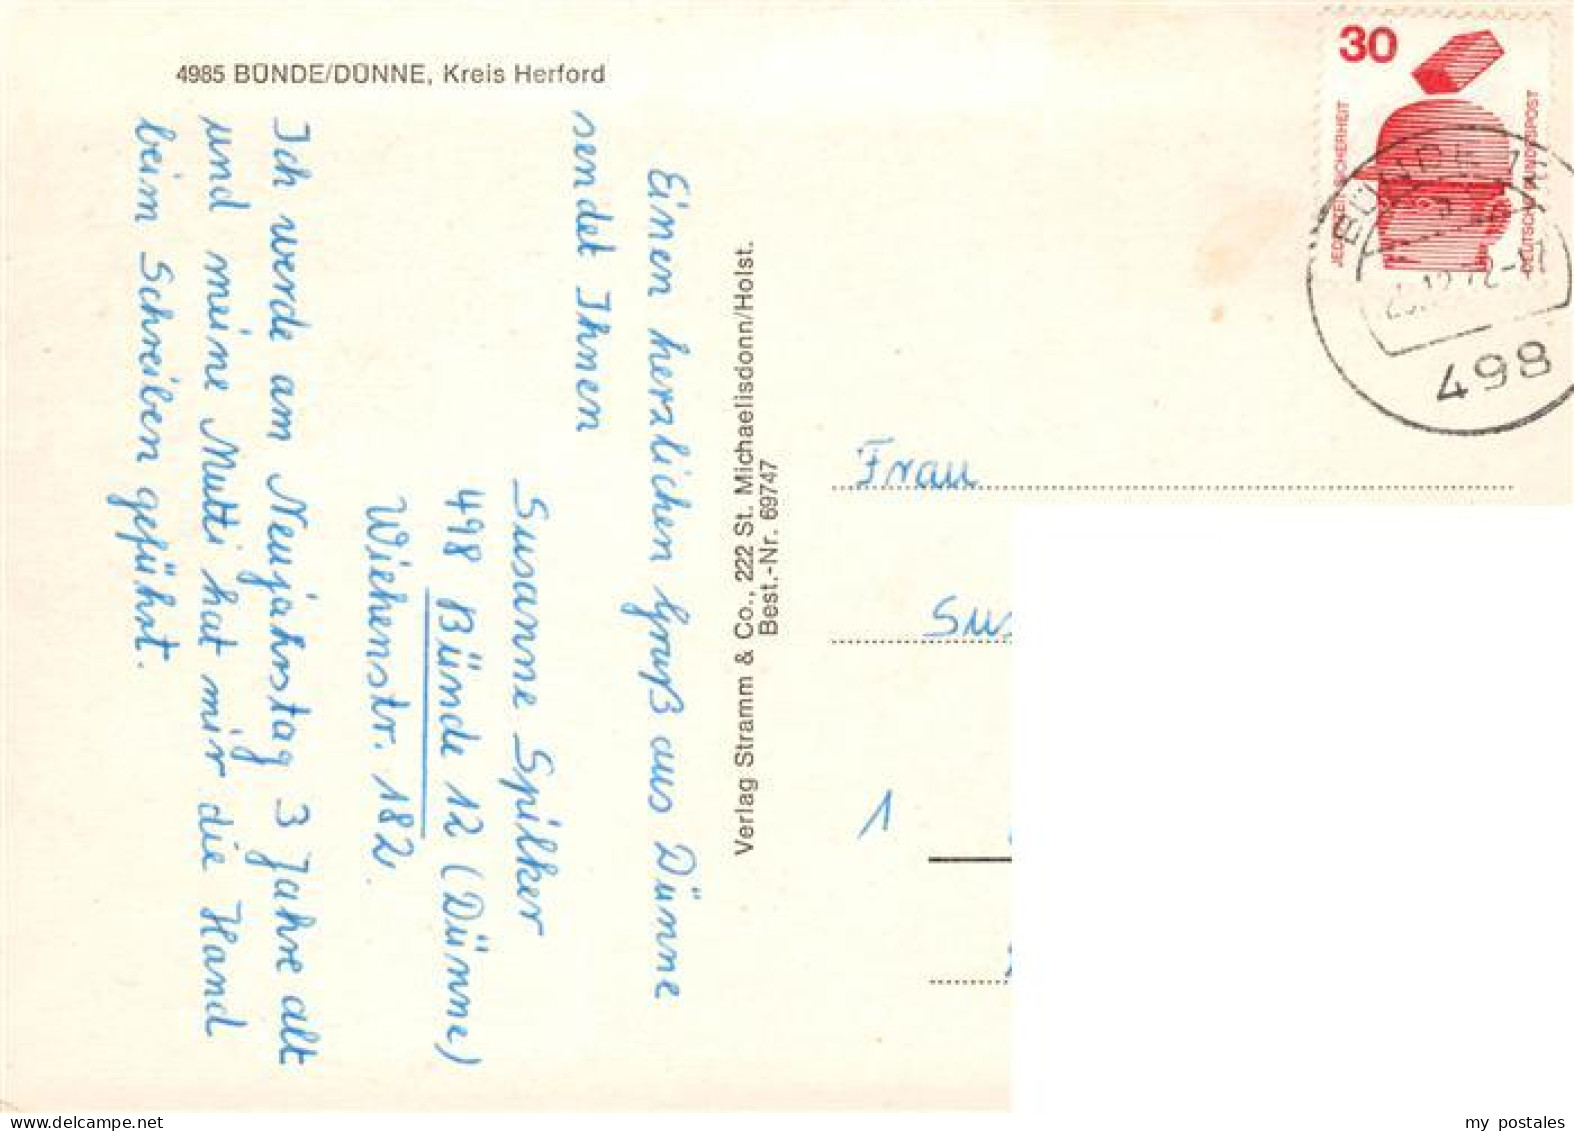 4985 BÜNDE/DÜNNE, Kreis Herford
Einen herzlichen Gruß aus Dünne
sendet Ihnen
Susanne Spilker
498 Bünde 12 (Dünne)
Wiehenstr. 182.
Ich werde am Neujahrstag 3 Jahre alt
und meine Mutti hat mir die Hand
beim Schreiben geführt.
Verlag Stramm & Co., 222 St. Michaelisdonn/Holst.
Best.-Nr. 69747
30
DEUTSCHE BUNDESPOST
BÜNDE 1
498
Frau
1
my postales
www.delcampe.net